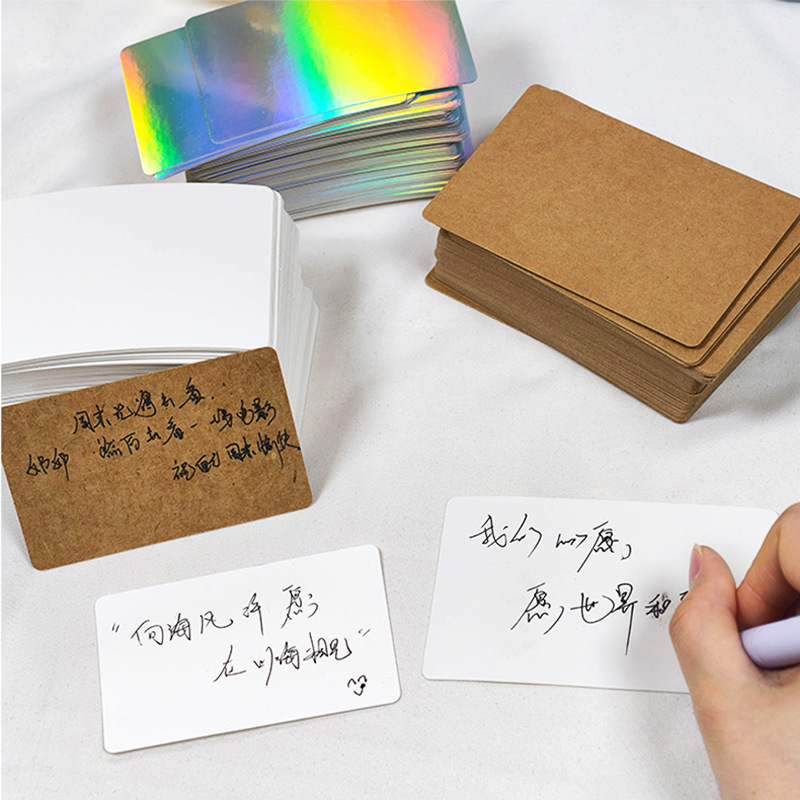 周末记得去看
奶奶 然后去看一场电影
祝我 周末愉快
"向海风许愿
在山海相见"
我们的愿,
愿,世界和平